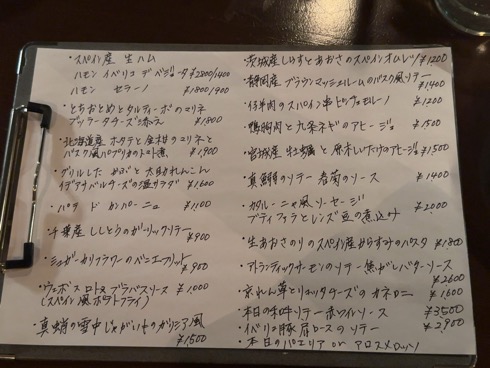 ・スペイン産 生ハム
ハモン イベリコ デ ベジョータ ¥2800/1400
ハモン セラーノ ¥1800/900
・とちおとめとタルティーボのマリネ
ブッラータチーズ添え ¥1800
・北海道産 ホタテと金柑のマリネと
バスク風パプリカのトマト煮 ¥1,900
・グリルした かぶと 太もれんこん
イディアサバルチーズの温サラダ ¥1,600
・パテ ド カンパーニュ ¥1,100
・千葉産 ししとうのガーリックソテー
¥900
・シュガーカリフラワーのベニエフリット
¥900
・ウェボス ロトス ブラバスソース ¥1,000
(スペイン風 ポテトフライ)
・真蛸の雪中じゃがいものガリシア風
¥1500
・茨城産しらすとあおさのスペインオムレツ ¥1200
・静岡産 ブラウンマッシュルームのバスク風ソテー
¥1400
・仔羊肉のスパイン串 ピンチョモルノ
¥1200
・鴨胸肉と九条ネギのアヒージョ ¥1500
・宮城産 牡蠣と原木しいたけのアヒージョ ¥1500
・真鯛のソテー 春菊のソース
¥1400
・カタルーニャ風 ソーセージ
ブティファラとレンズ豆の煮込み ¥2000
・生あおさのりのスペイン産からすみのパスタ ¥1800
・アトランティックサーモンのソテー 焦がしバターソース
¥2600
・京ほれん草とリコッタチーズのカネロニ ¥1,600
・本日の和牛ソテー 赤ワインソース ¥3500
・イベリコ豚 肩ロースのソテー ¥2,900
・本日のパエリア or アロスメロッソ